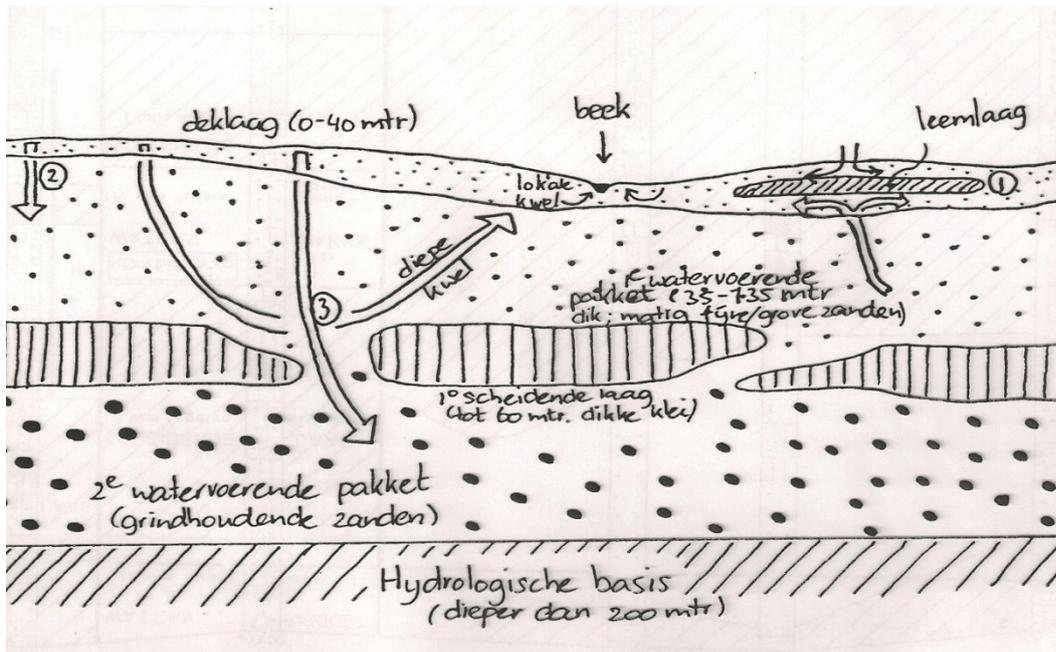 deklaag (0-40 mtr)
beek
leemlaag
②
lokale
kwel
①
diepe
kwel
③
1e watervoerende
pakket (35-135 mtr
dik; matig fijne/grove zanden)
1e scheidende laag
(tot 60 mtr. dikke klei)
2e watervoerende pakket
(grindhoudende zanden)
Hydrologische basis
(dieper dan 200 mtr)